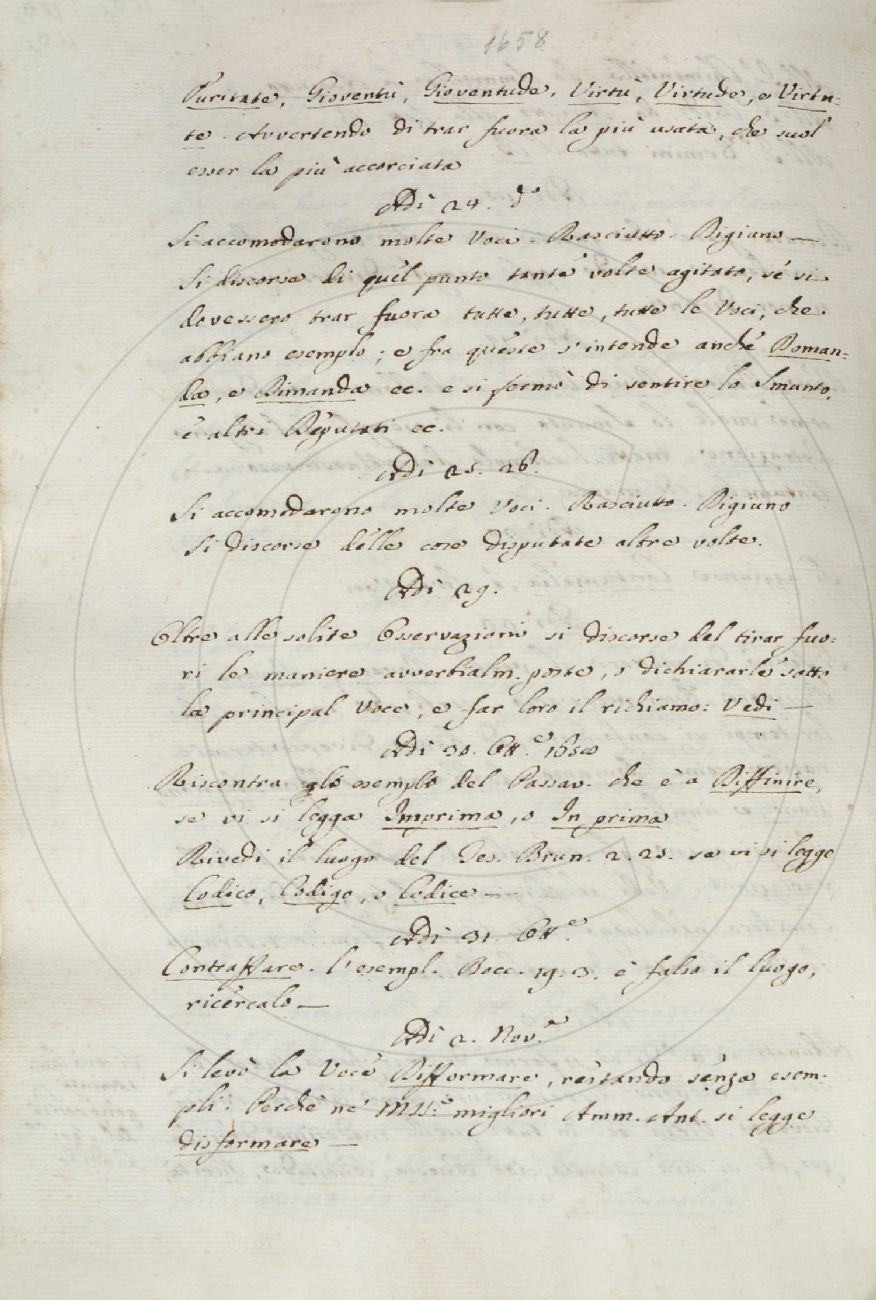 1658
Puritate, Gioventù, Gioventude, Virtù, Virtude, e Virtu-
te. Avvertendo di trar fuora la più usata, che suol
esser la più accorciata
Adi 24. do
Si accomodarono molte Voci. Rasciutto. Rigiuno —
Si discorse di quel punto tante volte agitato, se si
dovessero trar fuora tutte, tutte, tutte le Voci, che
abbiano esemplo; e fra queste s'intende anche Doman-
da, e Dimanda ec. e si fermò di sentire lo Smunto,
e altri Deputati ec.
Adi 25. 26.
Si accomodarono molte Voci. Rasciutto. Rigiuno
Si discorse delle cose disputate altre volte.
Adi 29.
Oltre alle solite Osservazioni si discorse del tirar fuo-
ri le maniere avverbialm. poste, o dichiararle sotto
la principal Voce, e far loro il richiamo: Vedi —
Adi 30. Ott.e 1658
Riscontra glo esemplo del Passav. che è a Diffinire,
se vi si legga Imprima, o In prima
Rivedi il luogo del Tes. Brun. 2. 25. se vi si legge
Codico, Codigo, o Codice —
Adi 31. Ott.e
Contraffare. l'esempl. Bocc. 19. 3. è falso il luogo,
ricercalo —
Adi 2. Nov.e
Si levò la Voce Difformare, restando senza esem-
pli. Perchè ne' MSS.ti migliori Amm. Ant. si legge
disformare —